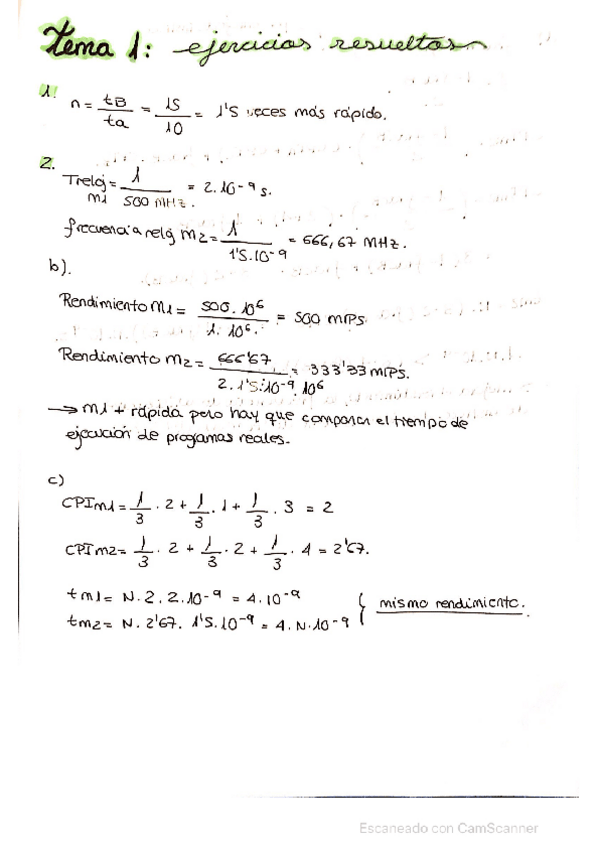 Tema 1: ejercicios resueltos
1. n = tB/ta = 15/10 = 1'5 veces más rápido.
2.
Treloj M1 = 1/500 MHz. = 2.10-9 s.
frecuencia reloj M2 = 1/1'5.10-9 = 666,67 MHz.
b).
Rendimiento M1 = 500.10^6/1.10^6. = 500 MIPS.
Rendimiento M2 = 666'67/2.1'5.10-9.10^6 = 333'33 MIPS.
→ M1 + rápida pero hay que comparar el tiempo de
ejecución de programas reales.
c)
CPI M1 = 1/3 . 2 + 1/3 . 1 + 1/3 . 3 = 2
CPI M2 = 1/3 . 2 + 1/3 . 2 + 1/3 . 4 = 2'67.
tM1 = N.2.2.10-9 = 4.10-9
tM2 = N.2'67. 1'5.10-9 = 4.N.10-9 } mismo rendimiento.
Escaneado con CamScanner